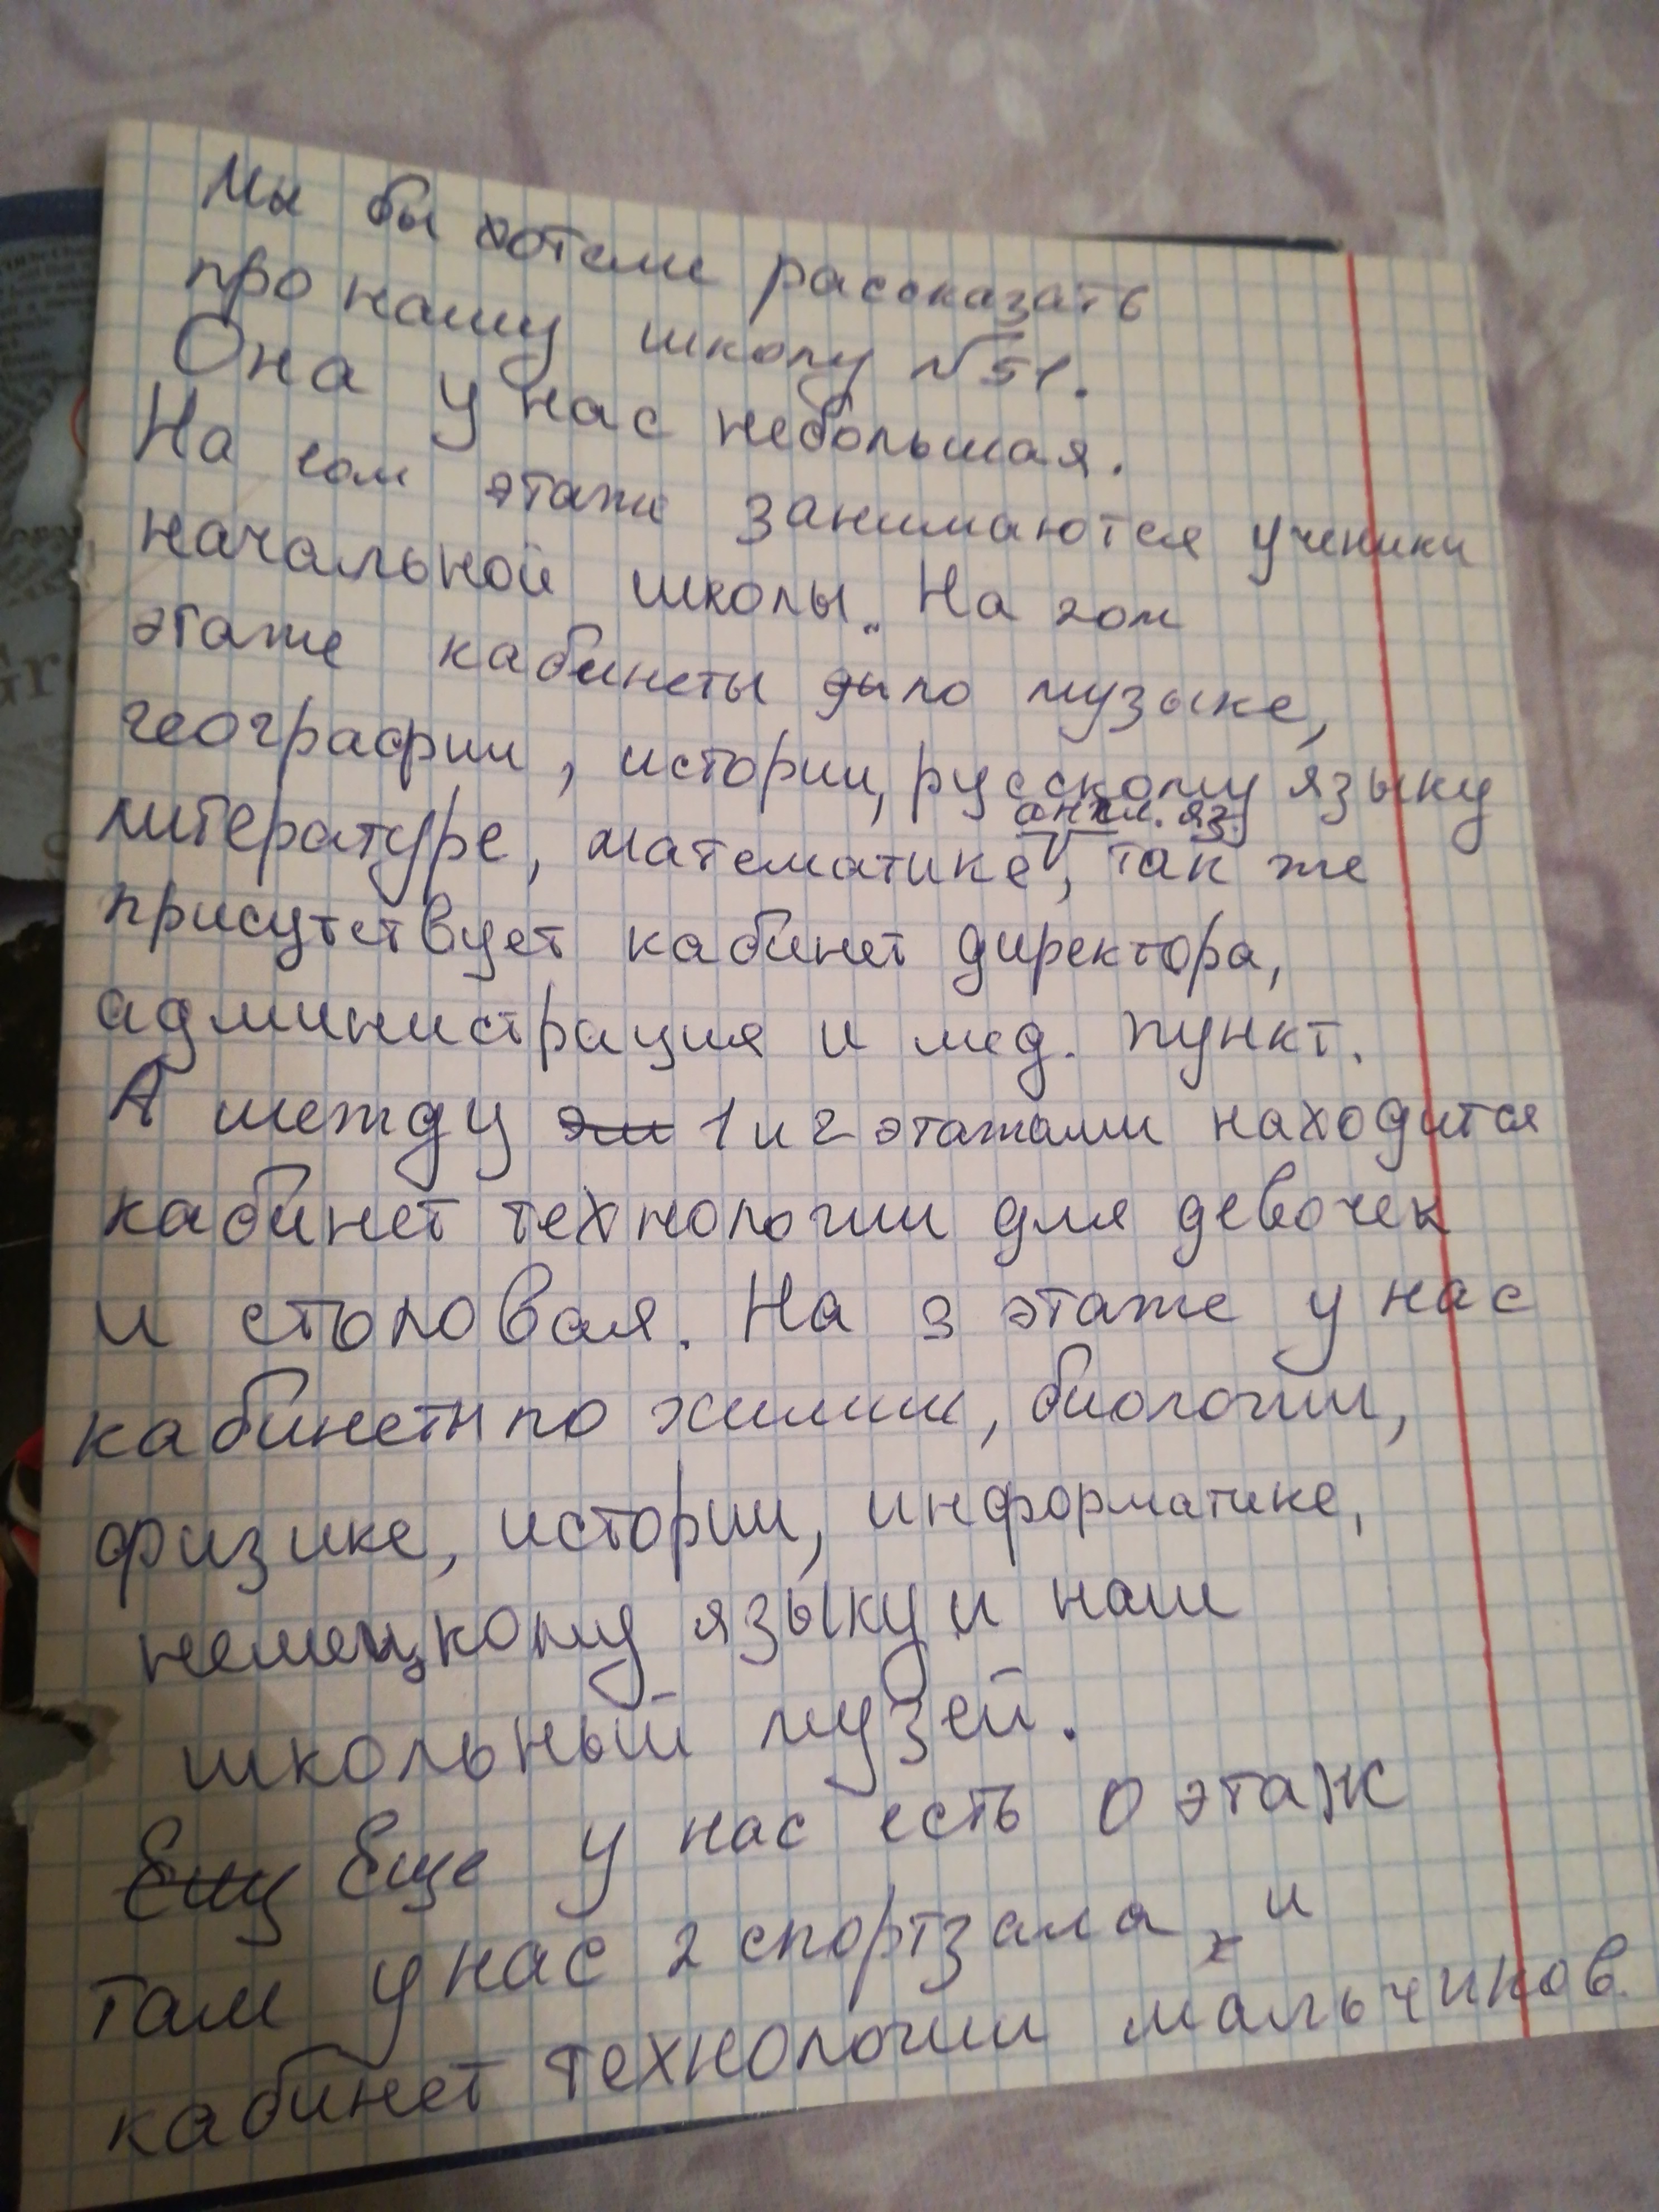 Мы бы хотели рассказать
про нашу школу №51.
Она у нас небольшая.
На 1ом этаже занимаются ученики
начальной школы. На 2ом
этаже кабинеты по музыке,
географии, истории, русскому языку
англ. яз.
литературе, математике, так же
присутствует кабинет директора,
администрация и мед. пункт.
А между 1 и 2 этажами находится
кабинет технологии для девочек
и столовая. На 3 этаже у нас
кабинеты по химии, биологии,
физике, истории, информатике,
немецкому языку и наш
школьный музей.
Еще у нас есть 0 этаж
там у нас 2 спортзала, и
кабинет технологии мальчиков.